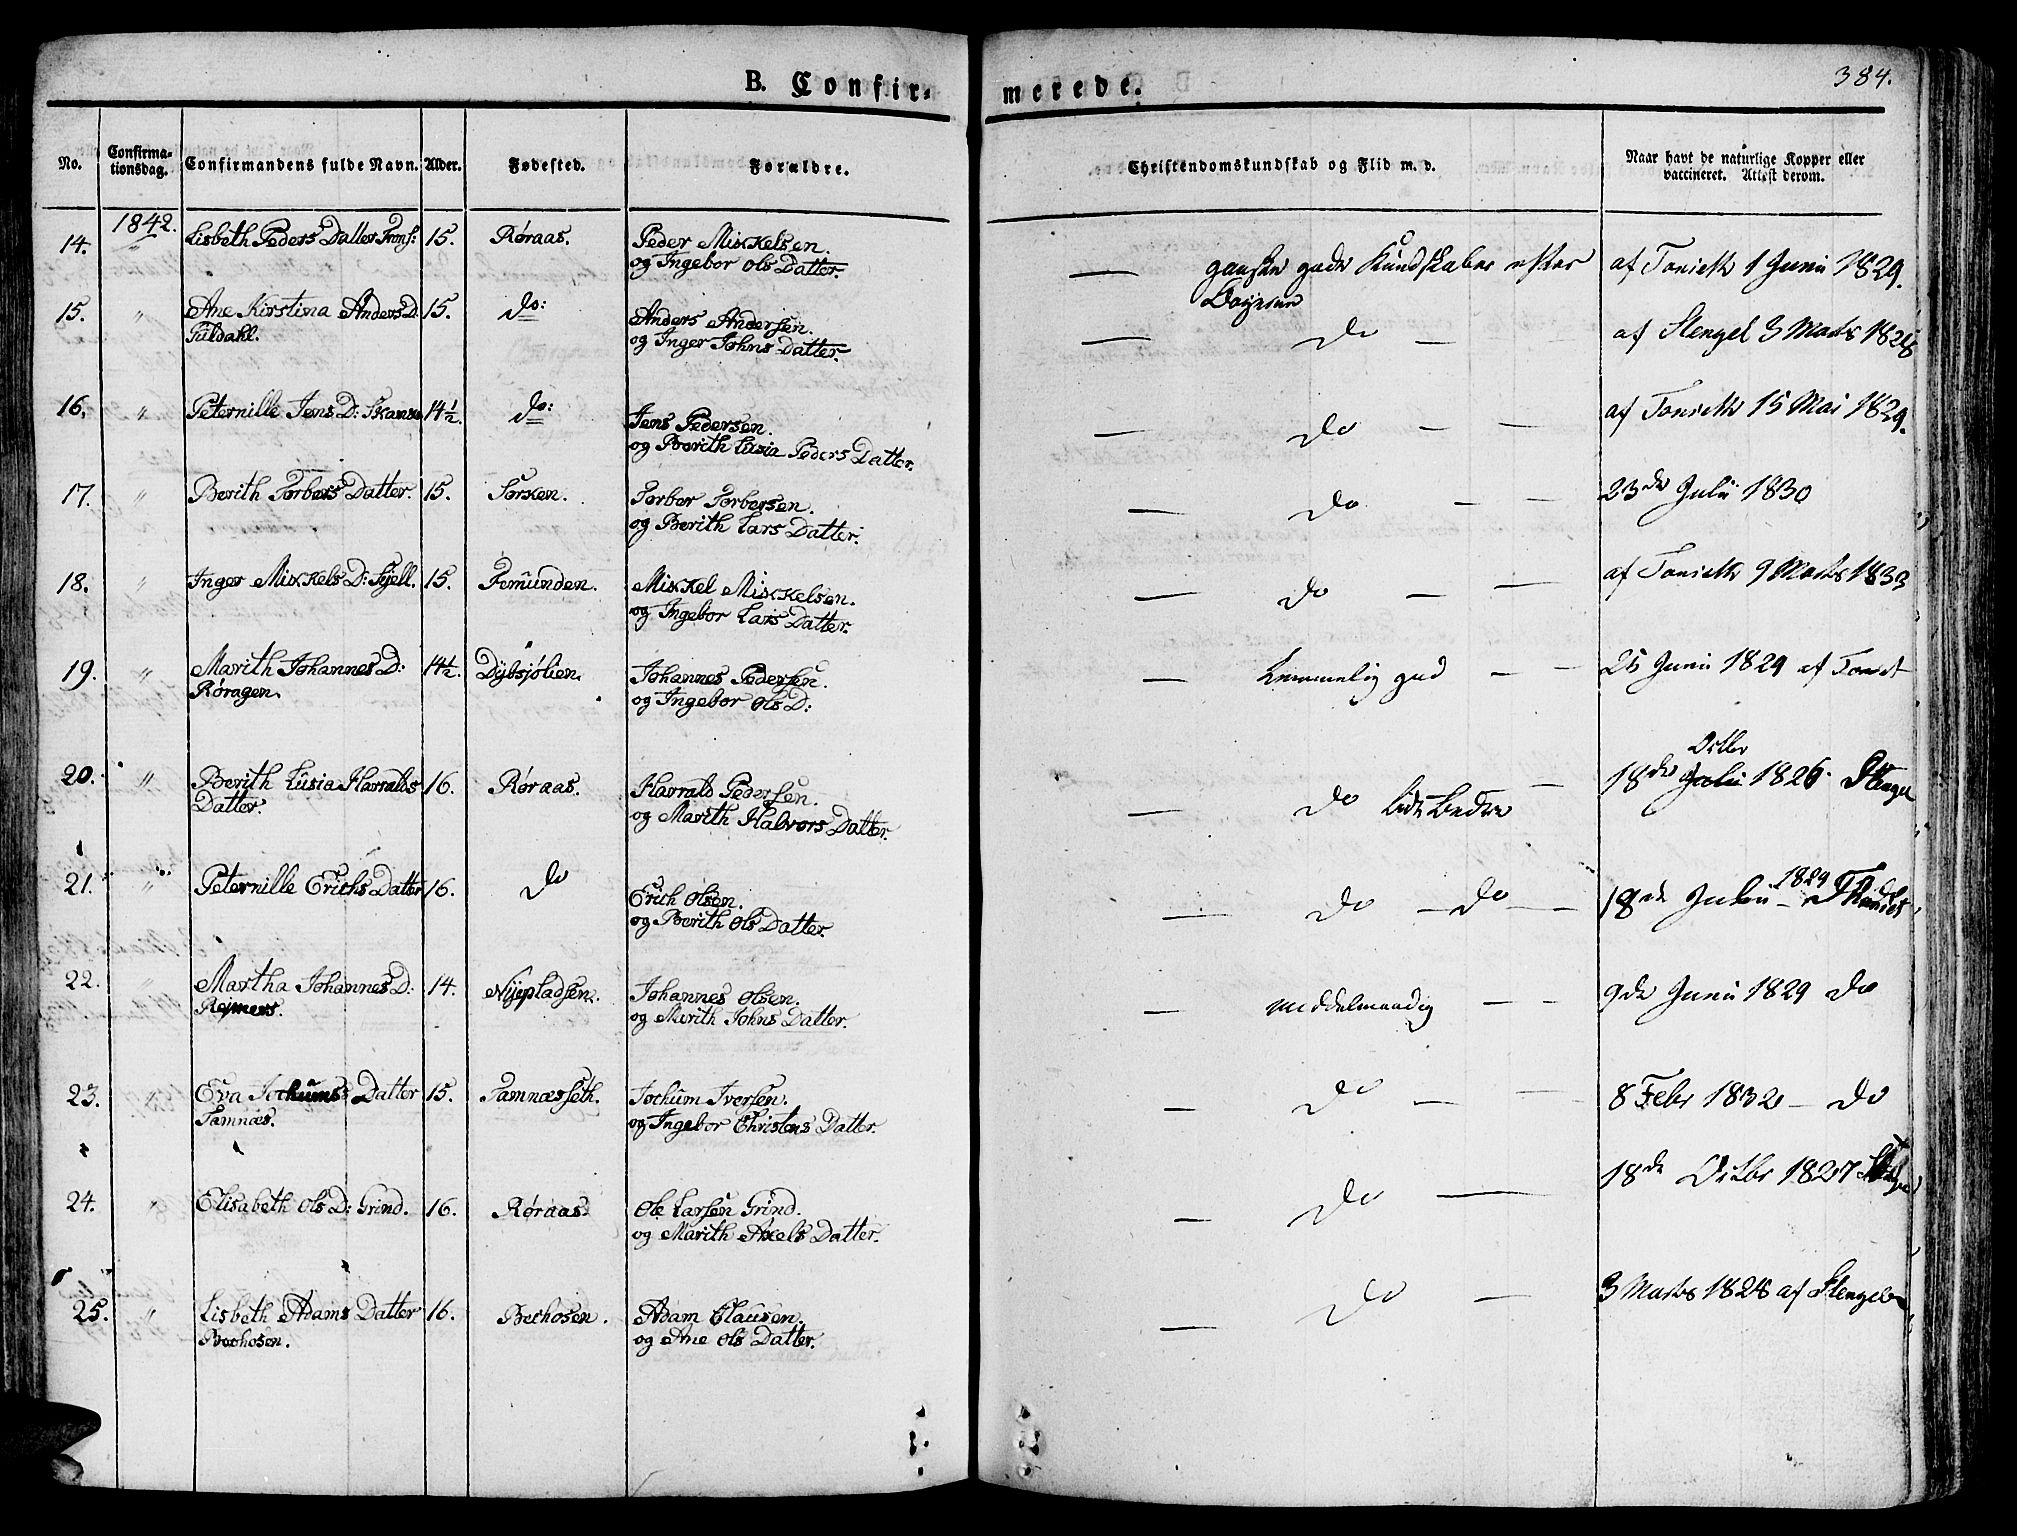 B. Confir-
merede.
384.
No.
Confirma-
tionsdag.
Confirmandens fulde Navn.
Alder.
Fødested.
Forældre.
Christendomskundskab og Flid m. v.
Naar havt de naturlige Kopper eller
vaccineret. Attest derom.
1842.
14. " Lisbeth Peders Datter 15. Røraas. Peder Mikkelsen.
og Ingebor Ols Datter.
— ganske gode Kundskaber efter af 1 Junii 1829.
15. " Ane Kirstina Anders D: 15. do: Anders Andersen.
Tuldahl. og Inger Johns Datter.
— do — af Stengel 3 Marts 1828
16. " Peternille Jens D: 14½. do: Jens Pedersen.
og Berith Lusia Peders Datter.
— do — — af 15 Mai 1829.
17. " Berith Torbers Datter. 15. Sørken. Torber Torbersen.
og Berith Lars Datter.
— do — — 23de Julii 1830
18. " Inger Mikkels D: 15. Femunden. Mikkel Mikkelsen.
og Ingebor Lars Datter.
— do — — af 9 Marts 1833
19. " Marith Johannes D: 14½. Johannes Pedersen.
Røragen. og Ingebor Ols D:
— temmelig god — — 25 Junii 1829 af
20. " Berith Lusia Harralds 16. Røraas. Harrald Pedersen.
Datter. og Marith Halvors Datter.
— do lidt bedre — 18de Octbr 1826. Stengel
21. " Peternille Erichs Datter 16. do Erich Olsen.
og Berith Ols Datter.
— do — do — 18de Julii 1829 —
22. " Martha Johannes D: 14. Nyepladsen. Johannes Olsen.
og Merith Johns Datter.
— middelmaadig — — 9de Junii 1829 do
23. " Eva Jochums Datter 15. Tamnæsseth. Jochum Iversen.
Tamnæs. og Ingebor Christens Datter.
— do — — 8 Febr 1832 — do
24. " Elisabeth Ols D: Grind. 16. Røraas. Ole Larsen Grind.
og Marith Axels Datter.
— do — 18de Octbr 1827
25. " Lisbeth Adams Datter 16. Bechosen. Adam Clausen.
Bechosen. og Ane Ols Datter.
— do — 3 Marts 1828 af Stengel